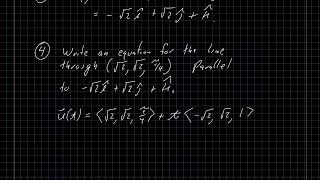 = -√2 î + √2 ĵ + k̂.
④ Write an equation for the line
through (√2, √2, π/4) parallel
to -√2 î + √2 ĵ + k̂.
ū(t) = ⟨√2, √2, π/4⟩ + t ⟨-√2, √2, 1⟩